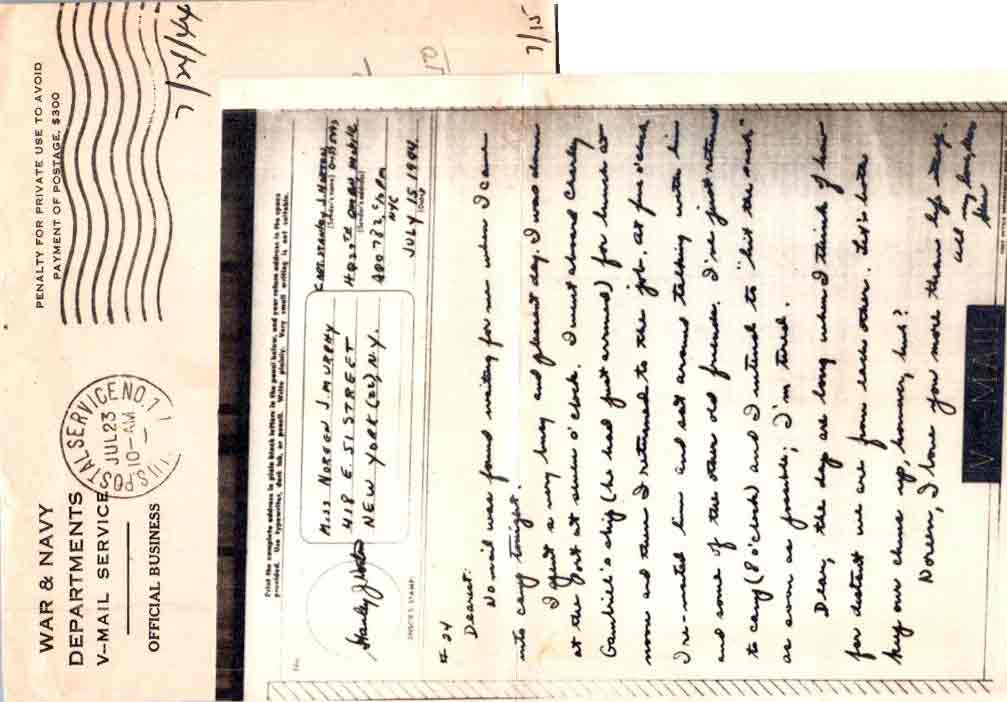 WAR & NAVY
DEPARTMENTS
V-MAIL SERVICE
OFFICIAL BUSINESS
U.S. POSTAL SERVICE NO. 1
JUL 23
10-AM
PENALTY FOR PRIVATE USE TO AVOID
PAYMENT OF POSTAGE, $300
7/24/44
7/15
Print the complete address in plain block letters in the panel below, and your return address in the space
provided. Use typewriter, dark ink, or pencil. Write plainly. Very small writing is not suitable.
No.
MISS NOREEN J. MURPHY
418 E 51 STREET
NEW YORK (22) N.Y.
STANLEY J.
(Sender's name)
HQ
(Sender's address)
APO 782 C/O PM
NYC
JULY 15 1944
(Date)
CENSOR'S STAMP
# 24
Dearest:
No mail was found waiting for me when I came
into camp tonight.
I spent a very busy and pleasant day. I was down
at the port at seven o'clock. I went aboard Charley
ship (he had just arrived) for lunch at
noon and then I returned to the job. At five o'clock
I re-visited him and sat around talking with him
and some of the other old friends. I've just returned
to camp (8 o'clock) and I intend to "hit the sack"
as soon as possible; I'm tired.
Dear, the days are long when I think of how
far distant we are from each other. Let's both
keep our chins up, honey, huh?
Noreen, I love you more than life itself.
All my love,
V-MAIL